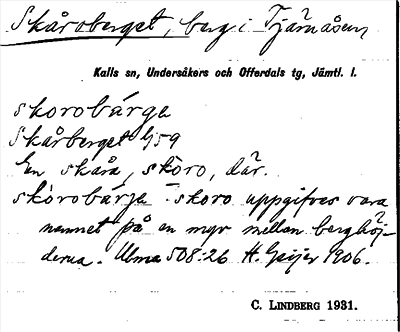 Skåroberget, berg i Tjärnåsen
Kalls sn, Undersåkers och Offerdals tg, Jämtl. l.
skorobárga
Skårberget G59
En skåra, skòro, där.
skòrobárga - skoro uppgifves vara
namnet på en myr mellan berghöj-
derna. Ulma 508:26 H. Geijer 1906.
C. LINDBERG 1931.